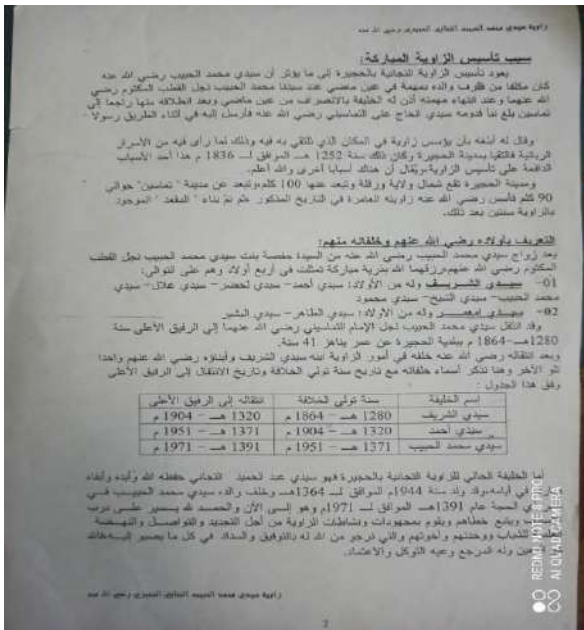 زاوية سيدي محمد الحبيب التجاني الحجيري رضي الله عنه
سبب تأسيس الزاوية المباركة:
يعود تأسيس الزاوية التجانية بالحجيرة إلى ما يؤثر أن سيدي محمد الحبيب رضي الله عنه
كان مكلفا من طرف والده بمهمة في عين ماضي عند سيدنا محمد الحبيب نجل القطب المكتوم رضي
الله عنهما وعند انتهاء مهمته أذن له الخليفة بالانصراف من عين ماضي وبعد انطلاقه منها راجعا إلى
تماسين بلغ نبأ قدومه سيدي الحاج علي التماسيني رضي الله عنه فأرسل إليه في أثناء الطريق رسولا
وقال له أبلغه بأن يؤسس زاوية في المكان الذي تلتقي به فيه وذلك لما رأى فيه من الأسرار
الربانية فالتقيا بمدينة الحجيرة وكان ذلك سنة 1252 هـ الموافق لـ 1836 م هذا أحد الأسباب
الدافعة على تأسيس الزاوية،ويقال أن هناك أسبابا أخرى والله أعلم.
ومدينة الحجيرة تقع شمال ولاية ورقلة وتبعد عنها 100 كلم،وتبعد عن مدينة " تماسين" حوالي
90 كلم فأسس رضي الله عنه زاويته العامرة في التاريخ المذكور ،ثم تم بناء "المقعد" الموجود
بالزاوية سنتين بعد ذلك.
التعريف بأولاده رضي الله عنهم وخلفائه منهم:
بعد زواج سيدي محمد الحبيب رضي الله عنه من السيدة حفصة بنت سيدي محمد الحبيب نجل القطب
المكتوم رضي الله عنهم،رزقهما الله بذرية مباركة تمثلت في أربع أولاد وهم على التوالي:
01- سيدي الشريف وله من الأولاد: سيدي أحمد- سيدي لخضر- سيدي علال- سيدي
محمد الحبيب- سيدي الشيخ- سيدي محمود
02- سيدي امعمر وله من الأولاد: سيدي الطاهر- سيدي البشير
وقد انتقل سيدي محمد الحبيب نجل الإمام التماسيني رضي الله عنهما إلى الرفيق الأعلى سنة
1280هـ-1864 م ببلدية الحجيرة عن عمر يناهز 41 سنة.
وبعد انتقاله رضي الله عنه خلفه في أمور الزاوية ابنه سيدي الشريف وأبناؤه رضي الله عنهم واحدا
تلو الآخر وهنا نذكر أسماء خلفائه مع تاريخ سنة تولي الخلافة وتاريخ الانتقال إلى الرفيق الأعلى
وفق هذا الجدول :
اسم الخليفة سنة تولي الخلافة انتقاله إلى الرفيق الأعلى
سيدي الشريف 1280 هـ – 1864 م 1320 هـ – 1904 م
سيدي أحمد 1320 هـ – 1904 م 1371 هـ – 1951 م
سيدي محمد الحبيب 1371 هـ – 1951 م 1391 هـ – 1971 م
أما الخليفة الحالي للزاوية التجانية بالحجيرة فهو سيدي عبد الحميد التجاني حفظه الله وأيده وأبقاه
في أيامه،وقد ولد سنة 1944م الموافق لـ 1364هـ وخلف والده سيدي محمد الحبيب في
الحجة عام 1391هـ الموافق لـ 1971م وهو إلى الآن والحمد لله يسير على درب
ويتبع خطاهم ويقوم بمجهودات ونشاطات الزاوية من أجل التجديد والتواصل والنهضة
للشباب ووحدتهم وأخوتهم والتي نرجو من الله له بالتوفيق والسداد في كل ما يصبو إليه،فالله
وله المرجع وعليه التوكل والاعتماد.
زاوية سيدي محمد الحبيب التجاني الحجيري رضي الله عنه
2
REDMI NOTE 8 PRO
AI QUAD CAMERA